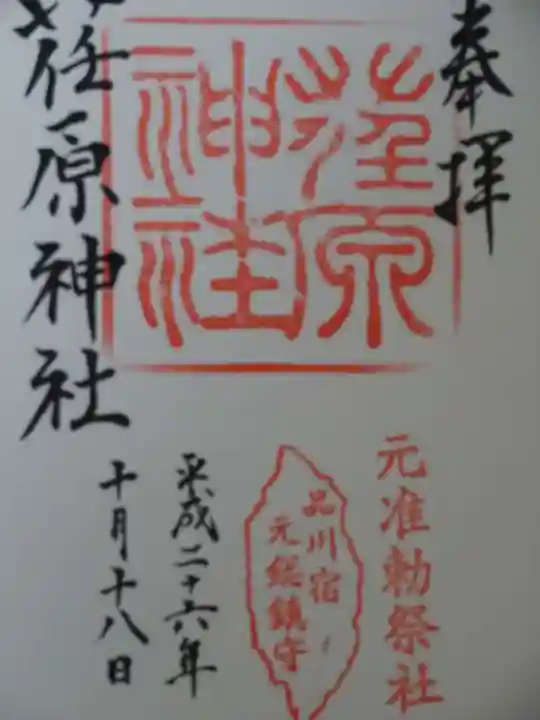 奉拝
元准勅祭社
荏原
神社
品川宿
元総鎮守
平成二十六年
十月十八日
荏原神社